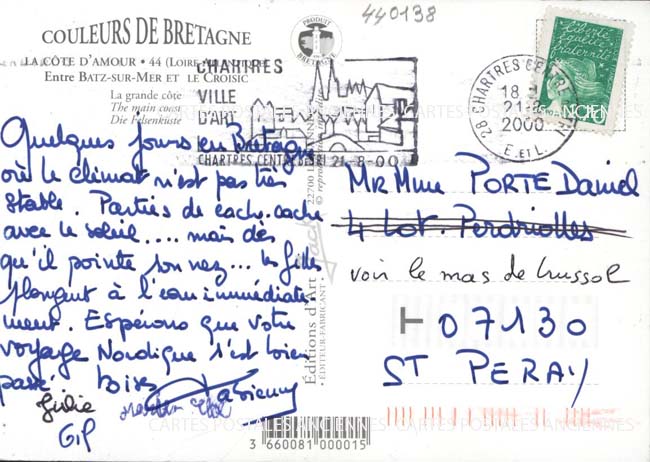 440138
COULEURS DE BRETAGNE
LA CÔTE D'AMOUR • 44 (LOIRE
ENTRE BATZ-SUR-MER ET LE CROISIC
La grande côte
The main coast
Die Felsenküste
PRODUIT
BRETAGNE
CHARTRES
VILLE
D'ART
CHARTRES CENTRE 21-8-00
28 CHARTRES CENTRE
18
21-8
2000
E. et L.
Quelques jours en Bretagne
où le climat n'est pas très
stable. Parties de cache-cache
avec le soleil.... mais dès
qu'il pointe son nez... les filles
plongent à l'eau immédiate-
ment. Espérons que votre
voyage Nordique s'est bien
passé. Bises Fabienne
Julie
GiP
22700
© reproduction
Éditions d'Art Jack
• ÉDITEUR-FABRICANT •
MR Mme PORTE Daniel
4 Lot. Perdriolles
voir le mas de Crussol
07130
ST PERAY
3 660081 000015
CARTES POSTALES ANCIENNES